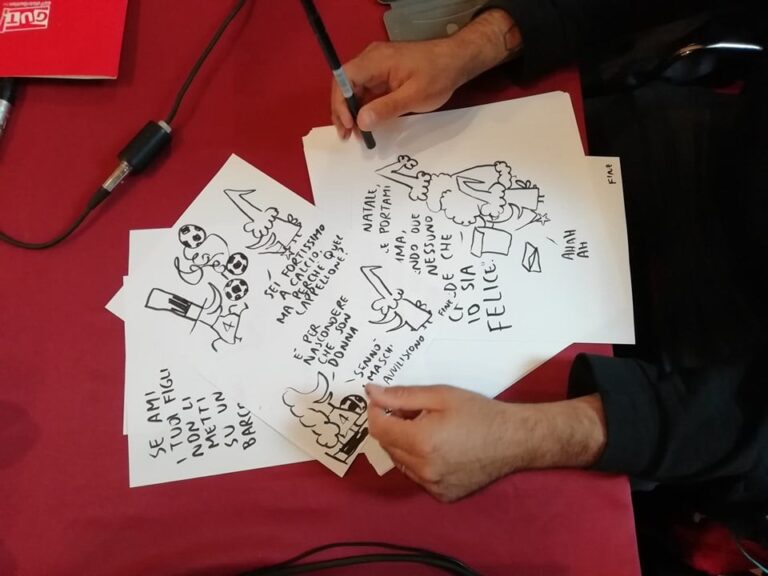 SEI FORTISSIMO
A CALCIO,
MA PERCHÉ QUEL
CAPPELLONE?
È PER
NASCONDERE
CHE SON
DONNA
SENNÒ
MASCHI
AVVILISCONO
NATALE,
E PORTAMI
IMA,
NDO DUE
NESSUNO
DE CHE
IO SIA
FELICE.
FINE
AHAH
AH
FINE
SE AMI
I TUOI FIGLI
NON LI
METTI
SU UN
BARC
4
4